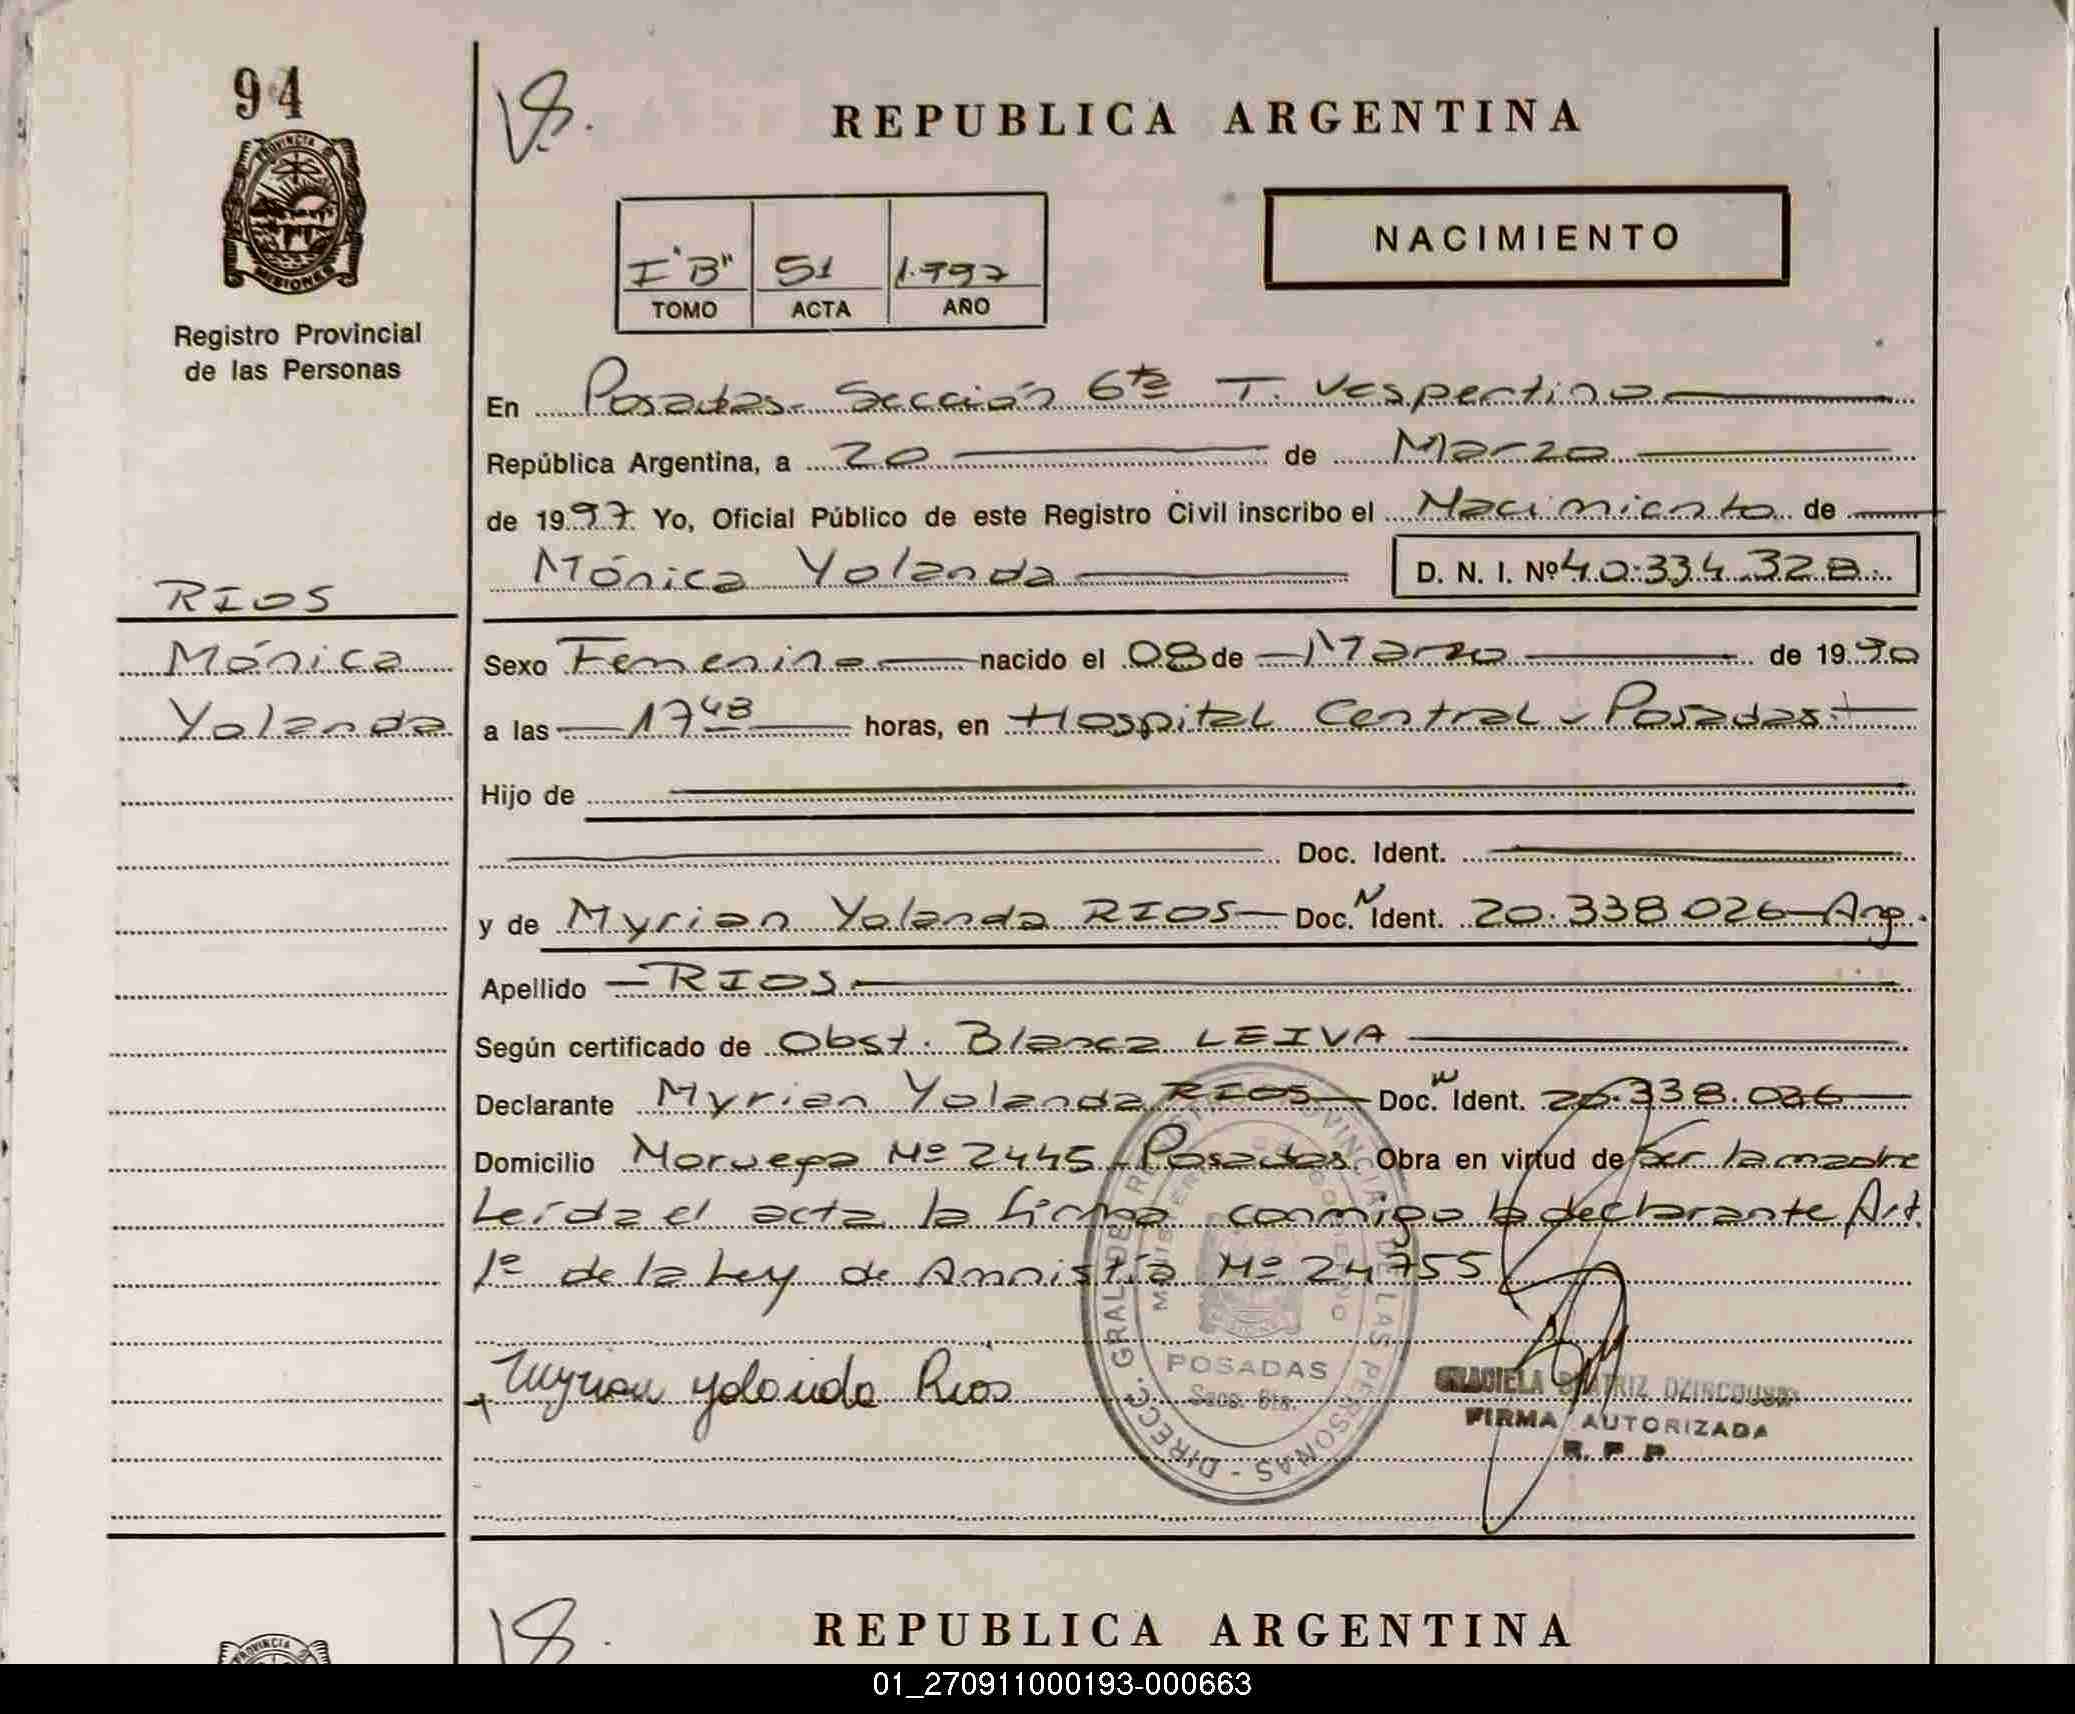 94
PROVINCIA D
MISIONES
Registro Provincial
de las Personas
RIOS
Mónica
Yolanda
V.B.
REPUBLICA ARGENTINA
I "B" 51 1.997
TOMO ACTA AÑO
NACIMIENTO
En Posadas - Sección 6ta T. Vespertino
República Argentina, a 20 de Marzo
de 1997 Yo, Oficial Público de este Registro Civil inscribo el Nacimiento de
Mónica Yolanda D. N. I. Nº 40.334.328.
Sexo Femenino nacido el 08 de Marzo de 1990
a las 17 48 horas, en Hospital Central - Posadas
Hijo de
Doc. Ident.
y de Myrian Yolanda RIOS Doc. N Ident. 20.338.026 - Arg.
Apellido RIOS
Según certificado de Obst. Blanca LEIVA
Declarante Myrian Yolanda RIOS Doc. N Ident. 20.338.026
Domicilio Noruega Nº 2445 - Posadas. Obra en virtud de ser la madre
Leída el acta la firma conmigo la declarante Art.
1º de la Ley de Amnistía Nº 24755
Myrian Yolanda Rios
DIRECC. GRAL DEL REGISTRO PROVINCIAL DE LAS PERSONAS -
MINISTERIO DE GOBIERNO
POSADAS
Secc. 6ta.
GRACIELA BEATRIZ
FIRMA AUTORIZADA
R. P. P.
PROVINCIA
REPUBLICA ARGENTINA
01_270911000193-000663